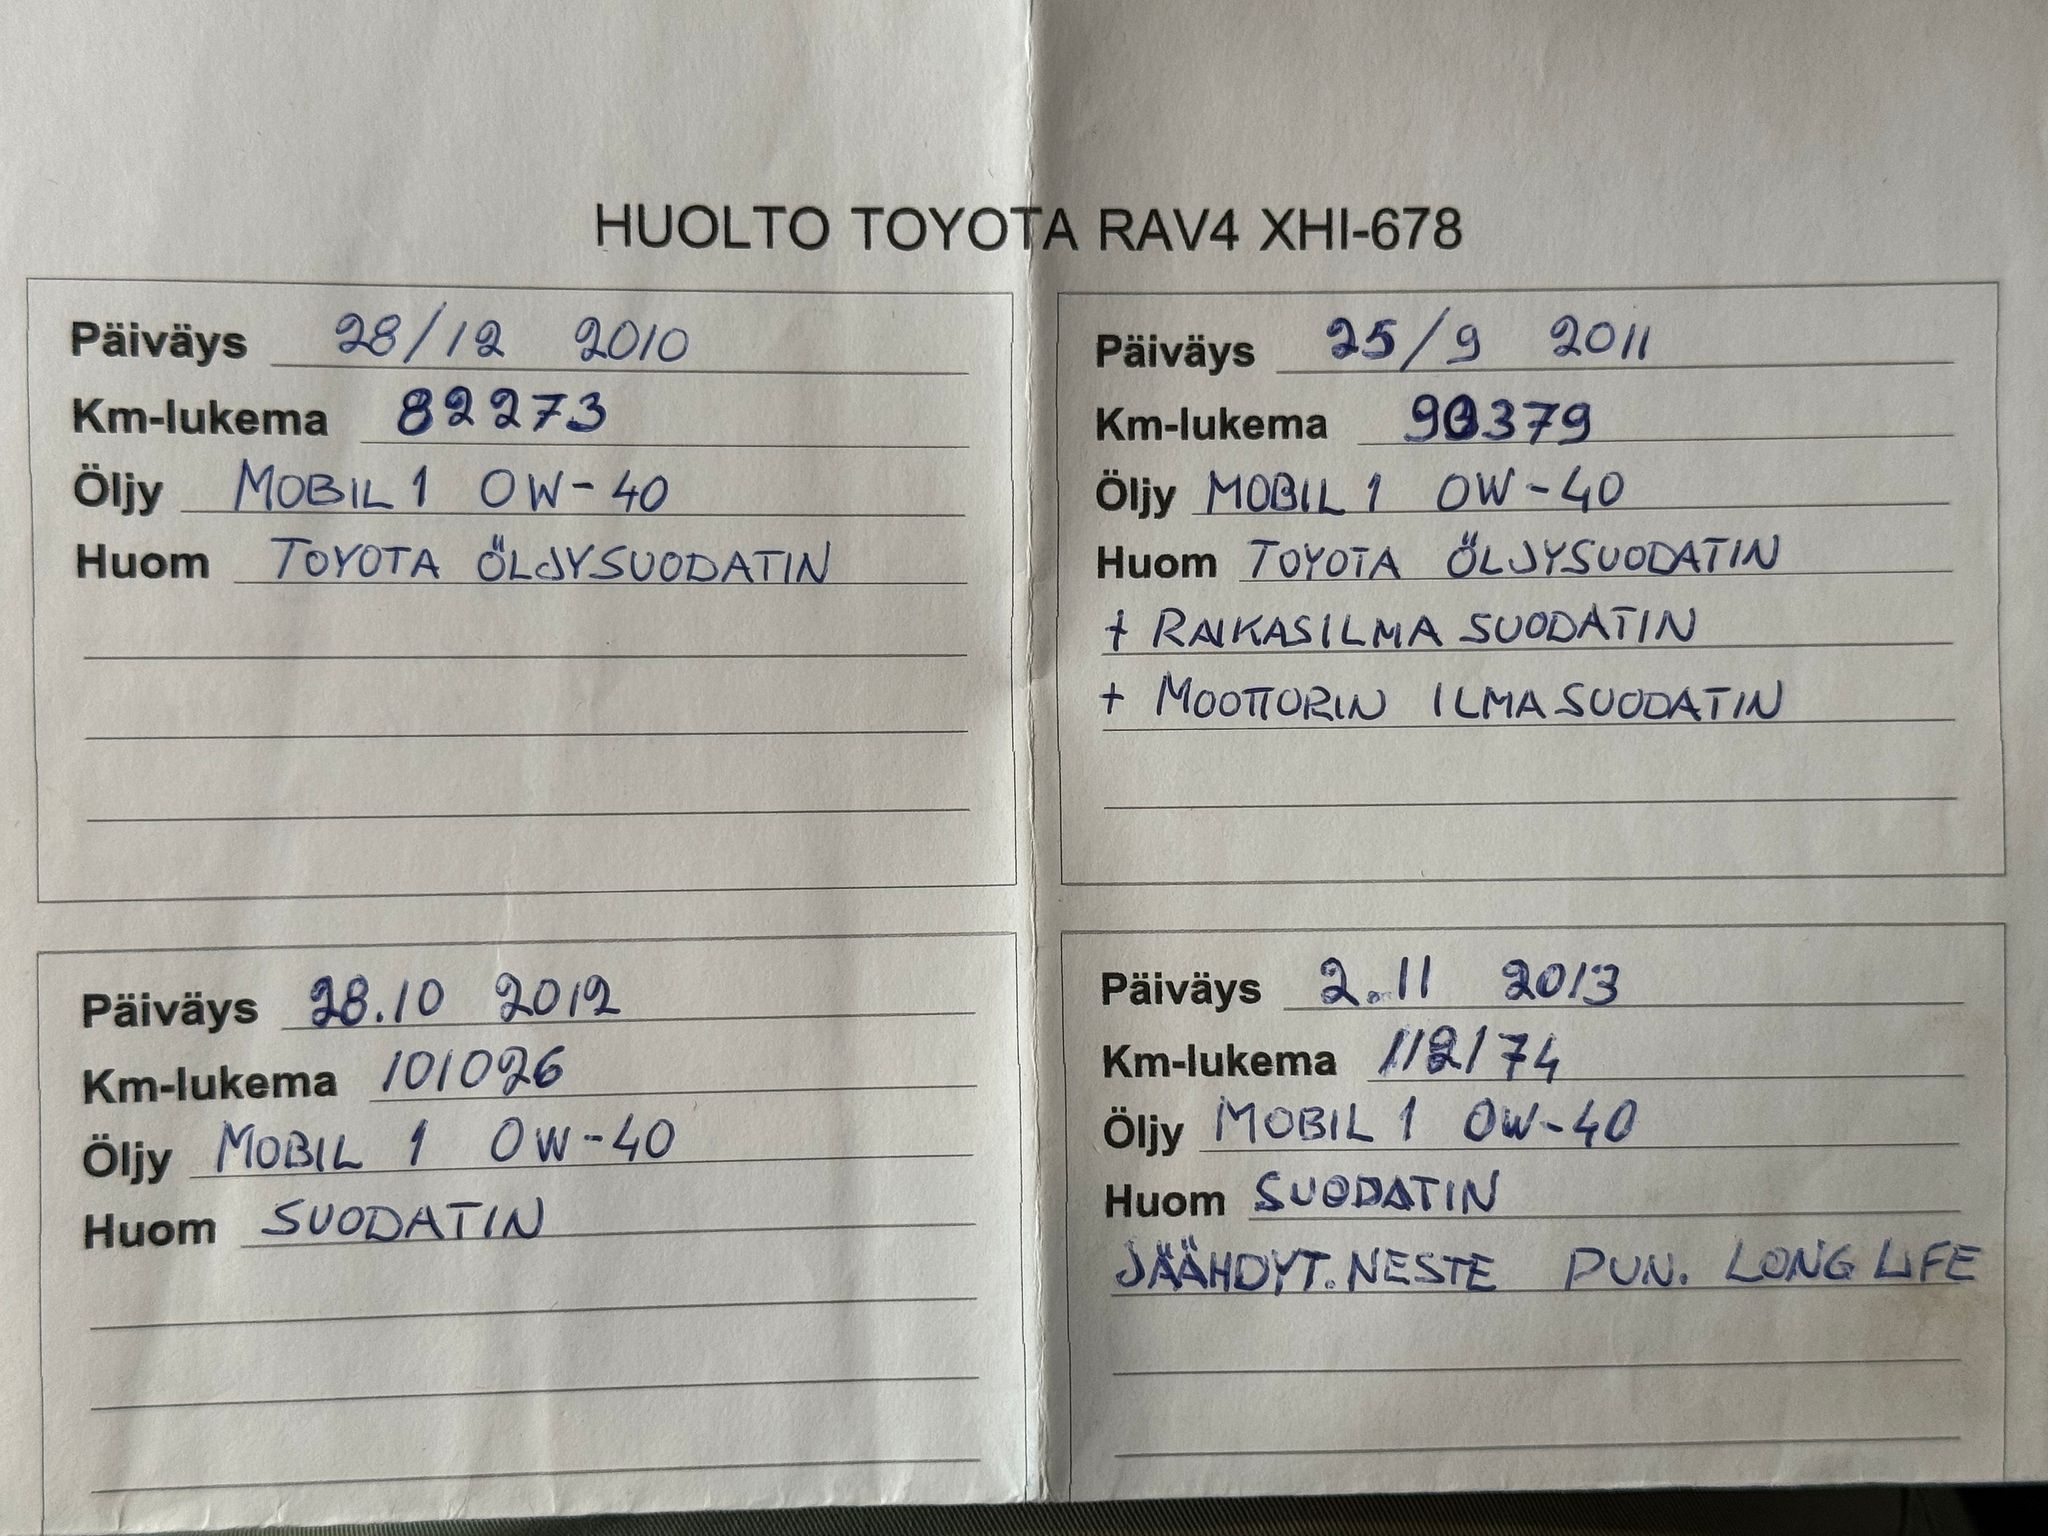 HUOLTO TOYOTA RAV4 XHI-678
Päiväys 28/12 2010
Km-lukema 82273
Öljy MOBIL 1 0W-40
Huom TOYOTA ÖLJYSUODATIN
Päiväys 25/9 2011
Km-lukema 90379
Öljy MOBIL 1 0W-40
Huom TOYOTA ÖLJYSUODATIN
+ RAIKASILMA SUODATIN
+ MOOTTORIN ILMASUODATIN
Päiväys 28.10 2012
Km-lukema 101026
Öljy MOBIL 1 0W-40
Huom SUODATIN
Päiväys 2.11 2013
Km-lukema 112174
Öljy MOBIL 1 0W-40
Huom SUODATIN
JÄÄHDYT.NESTE PUN. LONG LIFE